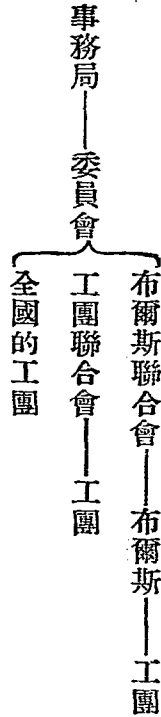 事務局——委員會
布爾斯聯合會——布爾斯——工團
工團聯合會——工團
全國的工團